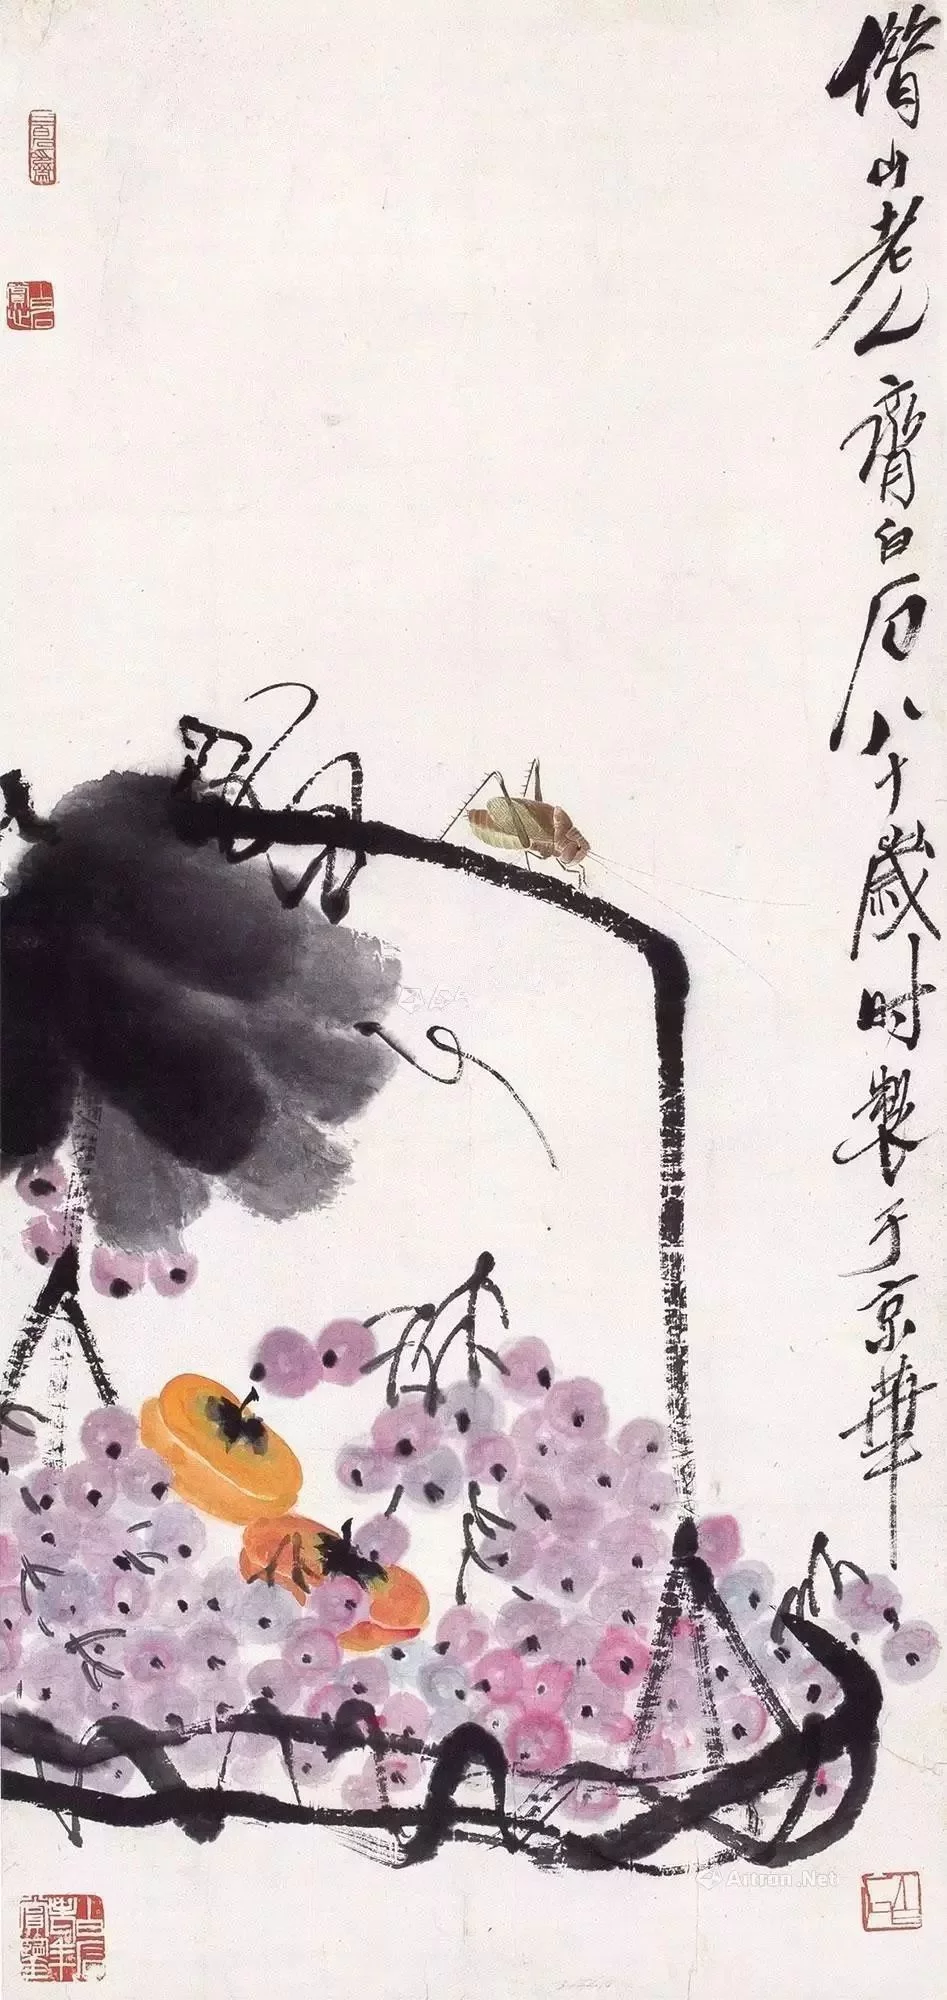 借山老人齊白石八十歲時製于京華
Artron.Net